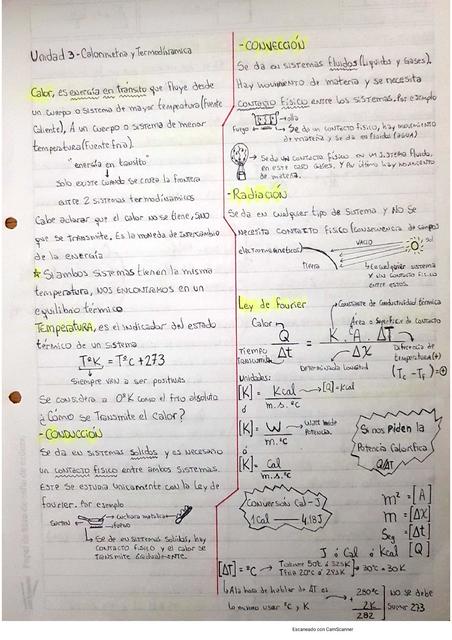 Unidad 3 - Calorimetria y Termodinamica
Calor, es energía en Tránsito que fluye desde
un cuerpo o sistema de mayor temperatura (fuente
caliente), A un cuerpo o sistema de menor
temperatura (fuente fría)
"energía en transito"
Solo existe cuando se cruza la frontera
entre 2 sistemas termodinámicos
Cabe aclarar que el calor no se tiene, sino
que se transmite. Es la moneda de intercambio
de la energía
★ Si ambos sistemas tienen la misma
temperatura, nos encontramos en un
equilibrio térmico
Temperatura, es el indicador del estado
térmico de un sistema
T°K = T°C + 273
Siempre van a ser positivas
Se considera a 0°K como el frio absoluto
¿Cómo se Transmite el Calor?
- CONDUCCIÓN
Se da en sistemas solidos y es necesario
un contacto físico entre ambos sistemas.
Este se estudia unicamente con la Ley de
fourier. Por ejemplo
Sartén
cuchara metalica
fuego
Se da en sistemas solidos, hay
contacto físico y el calor se
transmite
- CONVECCIÓN
Se da en sistemas fluidos (Liquidos y Gases).
Hay movimiento de materia y se necesita
contacto físico entre los sistemas. Por ejemplo
olla
Fuego
Se da un contacto físico, hay movimiento
de materia y se da en fluido (agua)
Se da un contacto físico en un sistema fluido,
en este caso gases. Y por último hay movimiento
de materia.
- Radiación
Se da en cualquier tipo de sistema y NO se
necesita contacto físico (consecuencia de campos
electromagnéticos)
VACIO
Sol
Tierra
En cualquier sistema
y sin contacto físico
entre estos.
Ley de fourier
Constante de Conductividad térmica
Calor
Área o Superficie de contacto
Q = K . A . ΔT
Δt ΔX
Tiempo
transcurrido
Diferencia de
temperatura (+)
Determinada Longitud
(Tc - TF) = ⊕
Unidades:
[K] = Kcal → [Q] = Kcal
m.s.°C
ó
[K] = W → Watt mide
Potencia.
m.°C
ó
[K] = Cal
m.s.°C
Si nos Piden la
Potencia Calorífica
Q/Δt
Conversión Cal - J
1 Cal 4,18J
m² = [A]
m = [ΔX]
Seg = [Δt]
J ó Cal ó Kcal [Q]
[ΔT] = °C
30°C = 30 K
A la hora de hablar de ΔT es
lo mismo usar °C y K
280°C
+ 2K
282
NO se debe
sumar 273
Escaneado con CamScanner